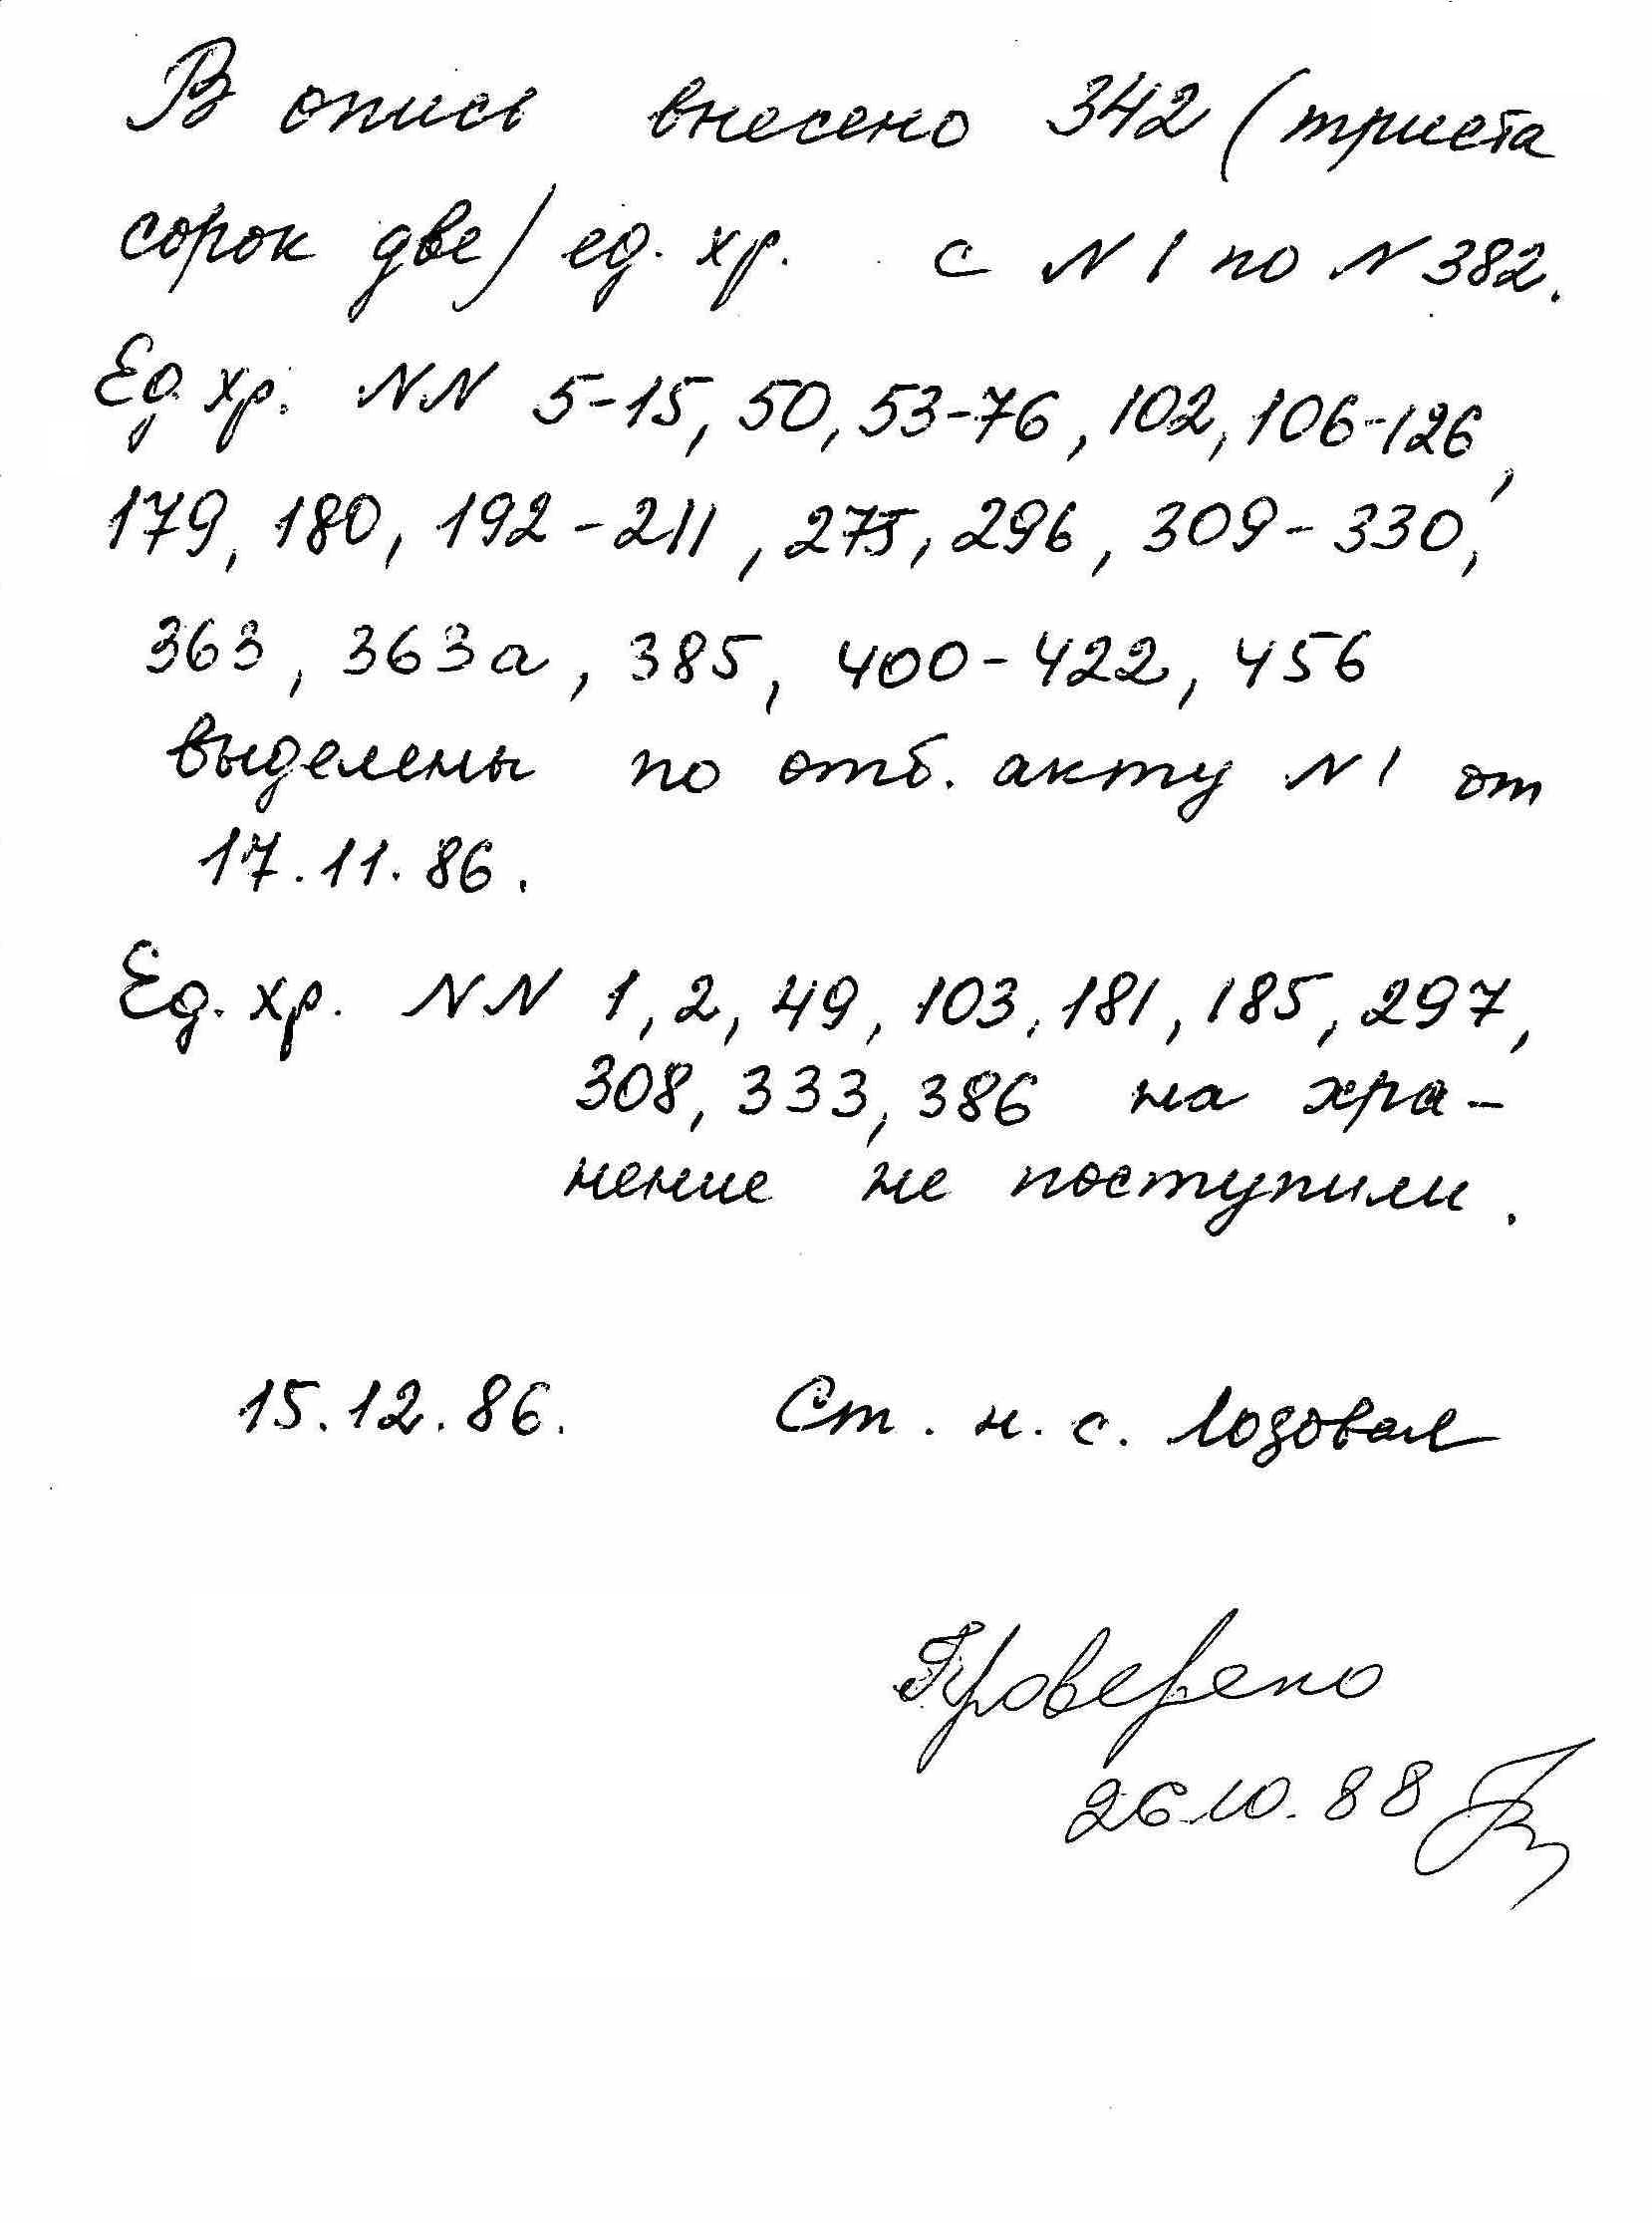 В опись внесено 342 (триста
сорок две) ед. хр. с N 1 по N 382.
Ед. хр. NN 5-15, 50, 53-76, 102, 106-126,
179, 180, 192-211, 275, 296, 309-330,
363, 363а, 385, 400-422, 456
выделены по отб. акту N 1 от
17.11.86.
Ед. хр. NN 1, 2, 49, 103, 181, 185, 297,
308, 333, 386 на хра-
нение не поступили.
15.12.86. Ст. н. с. Лозовая
Проверено
26.10.88